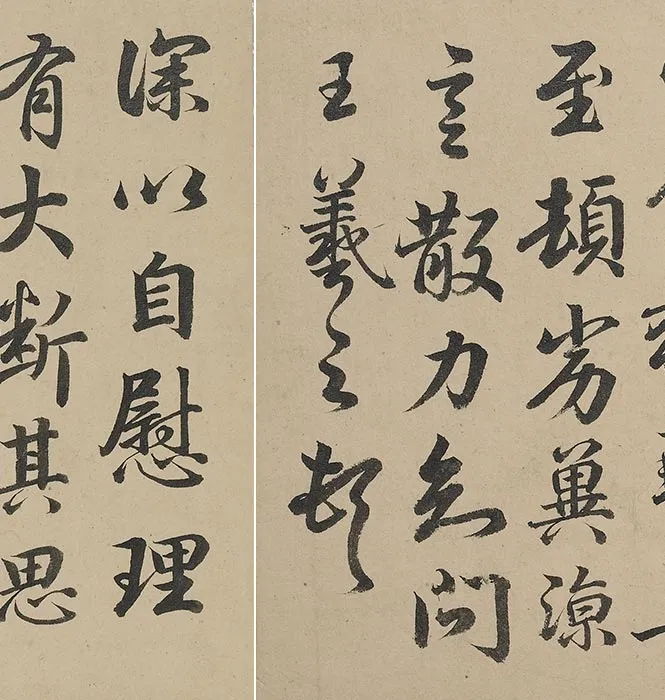 至頓劣冀涼
言散力知問
王羲之頓
深以自慰理
有大断其思